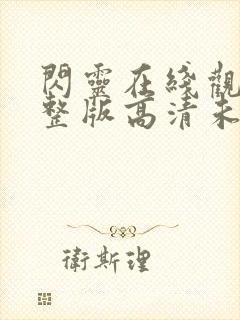 閃靈在綫觀
整版高清未
衛斯理